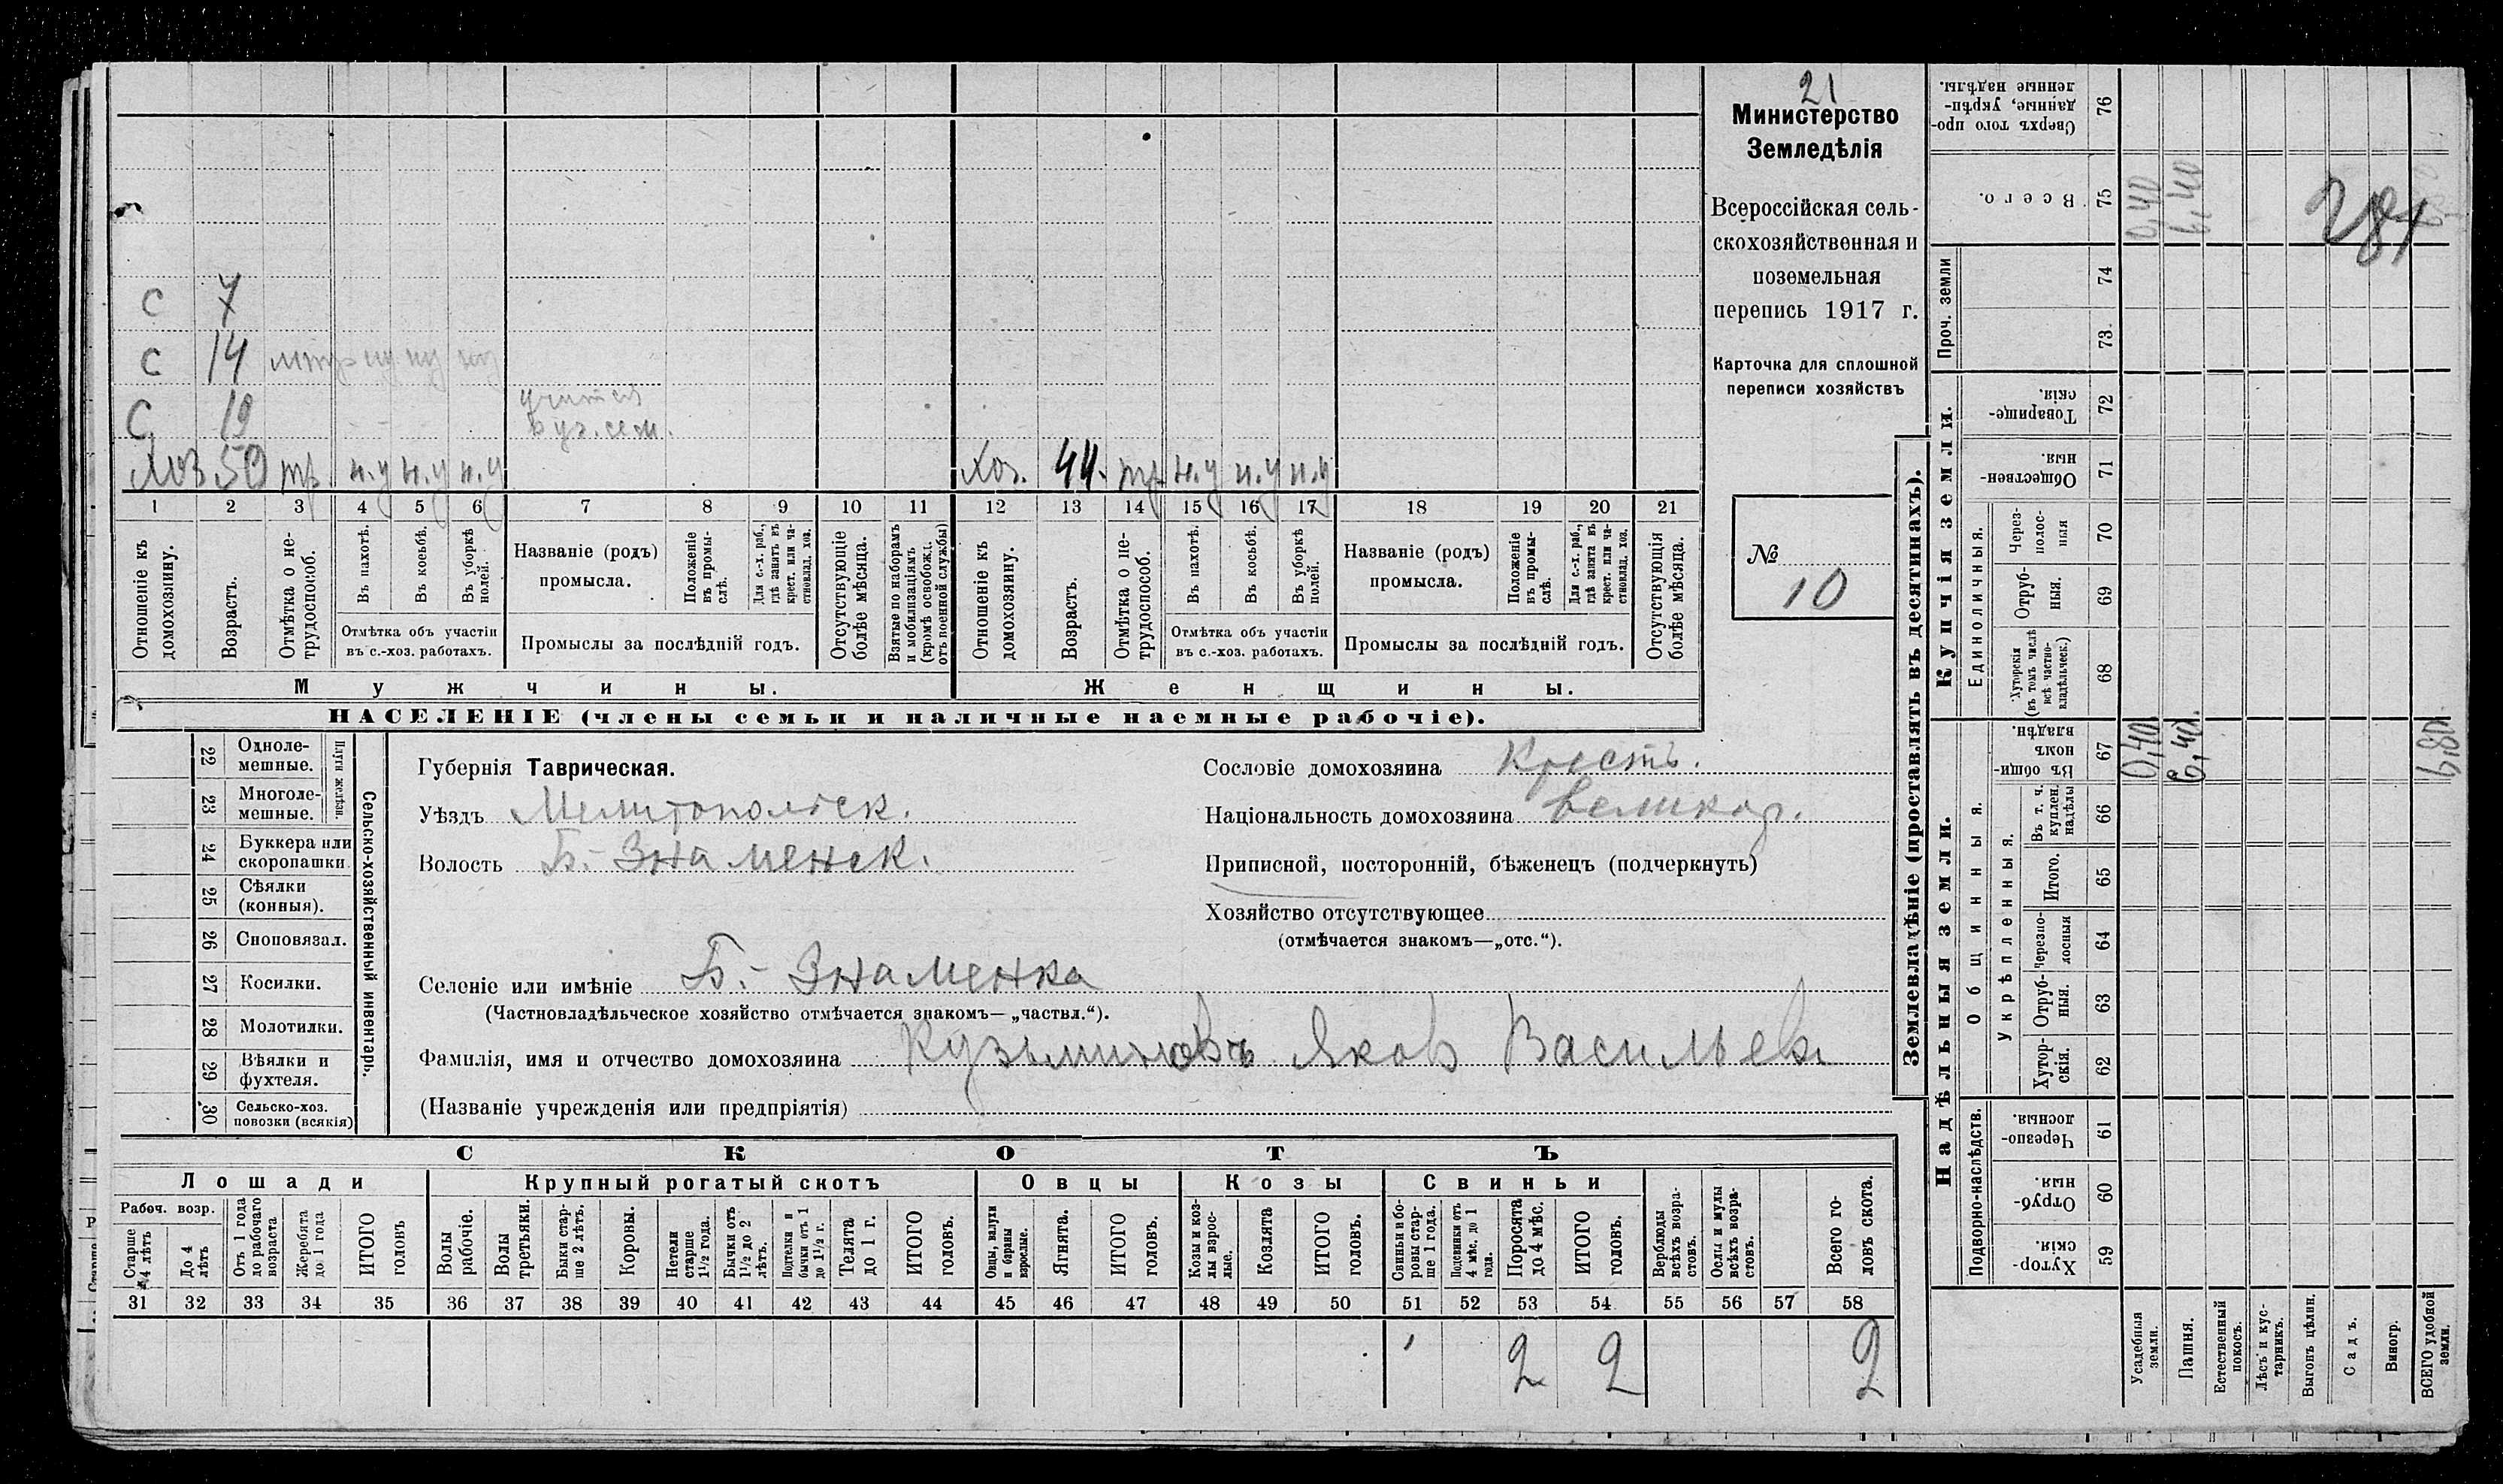 21
Министерство
Земледѣлія
Всероссійская сель-
скохозяйственная и
поземельная
перепись 1917 г.
Карточка для сплошной
переписи хозяйствъ
№
10
С 7
С 14
С 19 учится
в уч. сем.
Хоз 50 тр н.у н.у н.у
Хоз. 44. тр. н.у н.у н.у
1 2 3 4 5 6 7 8 9 10 11 12 13 14 15 16 17 18 19 20 21
Отношеніе къ домохозяину.
Возрастъ.
Отмѣтка о не-трудоспособ.
Въ пахотѣ.
Въ косьбѣ.
Въ уборкѣ полей.
Отмѣтка объ участіи
въ с.-хоз. работахъ.
Названіе (родъ)
промысла.
Положеніе въ промы-слѣ.
Для с.-х. раб., гдѣ занятъ въ крест. или ча-стновлад. хоз.
Промыслы за послѣдній годъ.
Отсутствующіе болѣе мѣсяца.
Взятые по наборамъ и мобилизаціямъ (кромѣ освобожд. отъ военной службы)
Отношеніе къ домохозяину.
Возрастъ.
Отмѣтка о не-трудоспособ.
Въ пахотѣ.
Въ косьбѣ.
Въ уборкѣ полей.
Отмѣтка объ участіи
въ с.-хоз. работахъ.
Названіе (родъ)
промысла.
Положеніе въ промы-слѣ.
Для с.-х. раб., гдѣ занята въ крест. или ча-стновлад. хоз.
Промыслы за послѣдній годъ.
Отсутствующія болѣе мѣсяца.
Мужчины.
Женщины.
НАСЕЛЕНІЕ (члены семьи и наличные наемные рабочіе).
Сельско-хозяйственный инвентарь.
Плуги желѣзн.
22 Одноле-мешные.
23 Многоле-мешные.
24 Буккера или скоропашки.
25 Сѣялки (конныя).
26 Сноповязал.
27 Косилки.
28 Молотилки.
29 Вѣялки и фухтеля.
30 Сельско-хоз. повозки (всякія)
Губернія Таврическая.
Уѣздъ Мелитопольск.
Волость Б.-Знаменск.
Сословіе домохозяина Крестъ.
Національность домохозяина великор.
Приписной, посторонній, бѣженецъ (подчеркнуть)
Хозяйство отсутствующее
(отмѣчается знакомъ—„отс.“).
Селеніе или имѣніе Б.- Знаменка
(Частновладѣльческое хозяйство отмѣчается знакомъ— „частвл.“).
Фамилія, имя и отчество домохозяина Яков Васильев
(Названіе учрежденія или предпріятія)
СКОТЪ
Лошади Крупный рогатый скотъ Овцы Козы Свиньи
Рабоч. возр.
Старше 4 лѣтъ
До 4 лѣтъ
Отъ 1 года до рабочаго возраста
Жеребята до 1 года
ИТОГО головъ
Волы рабочіе.
Волы третьяки.
Быки стар-ше 2 лѣтъ.
Коровы.
Нетели старше 1½ года.
Бычки отъ 1½ до 2 лѣтъ.
Подтелки и бычки отъ 1 до 1½ г.
Телята до 1 г.
ИТОГО головъ.
Овцы, валухи и бараны взрослые.
Ягнята.
ИТОГО головъ.
Козы и коз-лы взрос-лые.
Козлята
ИТОГО головъ.
Свиньи и бо-ровы стар-ше 1 года.
Подсвинки отъ 4 мѣс. до 1 года.
Поросята до 4 мѣс.
ИТОГО головъ.
Верблюды всѣхъ возра-стовъ.
Ослы и мулы всѣхъ возра-стовъ.
Всего го-ловъ скота.
31 32 33 34 35 36 37 38 39 40 41 42 43 44 45 46 47 48 49 50 51 52 53 54 55 56 57 58
2 2 2
Землевладѣніе (проставлять въ десятинахъ).
Надѣльныя земли.
Купчія земли.
Проч. земли
Подворно-наслѣдств.
Общинныя.
Укрѣпленныя.
Единоличныя.
Сверхъ того про-данные, укрѣп-ленные надѣлы. 76
Всего. 75 0,40 6,40
281
74
73.
Товарище-скія. 72
Обществен-ныя. 71
Через-полос-ныя 70
Отруб-ныя. 69
Хуторскія (въ томъ числѣ всѣ частно-владѣльческ.) 68
Въ общин-номъ владѣн. 67 0,40. 6,40. 6,80
Въ т. ч. куплен. надѣлы 66
Итого. 65
Черезпо-лосныя 64
Отруб-ныя. 63
Хутор-скія. 62
Черезпо-лосныя. 61
Отруб-ныя. 60
Хутор-скія. 59
Усадебныя земли.
Пашня.
Естественный покосъ.
Лѣсъ и кус-тарникъ.
Выгонъ цѣлин.
Садъ.
Виногр.
ВСЕГО удобной земли.